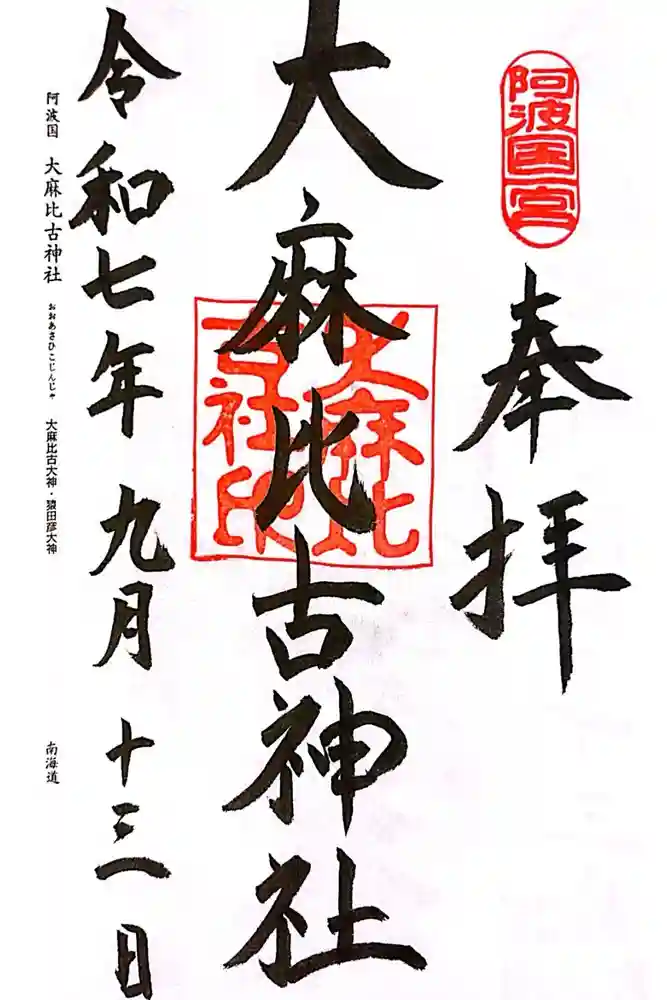 阿波国一宮
奉拝
大麻比古神社
大麻比
古社印
令和七年九月十三日
阿波国 大麻比古神社 おおあさひこじんじゃ 大麻比古大神・猿田彦大神 南海道